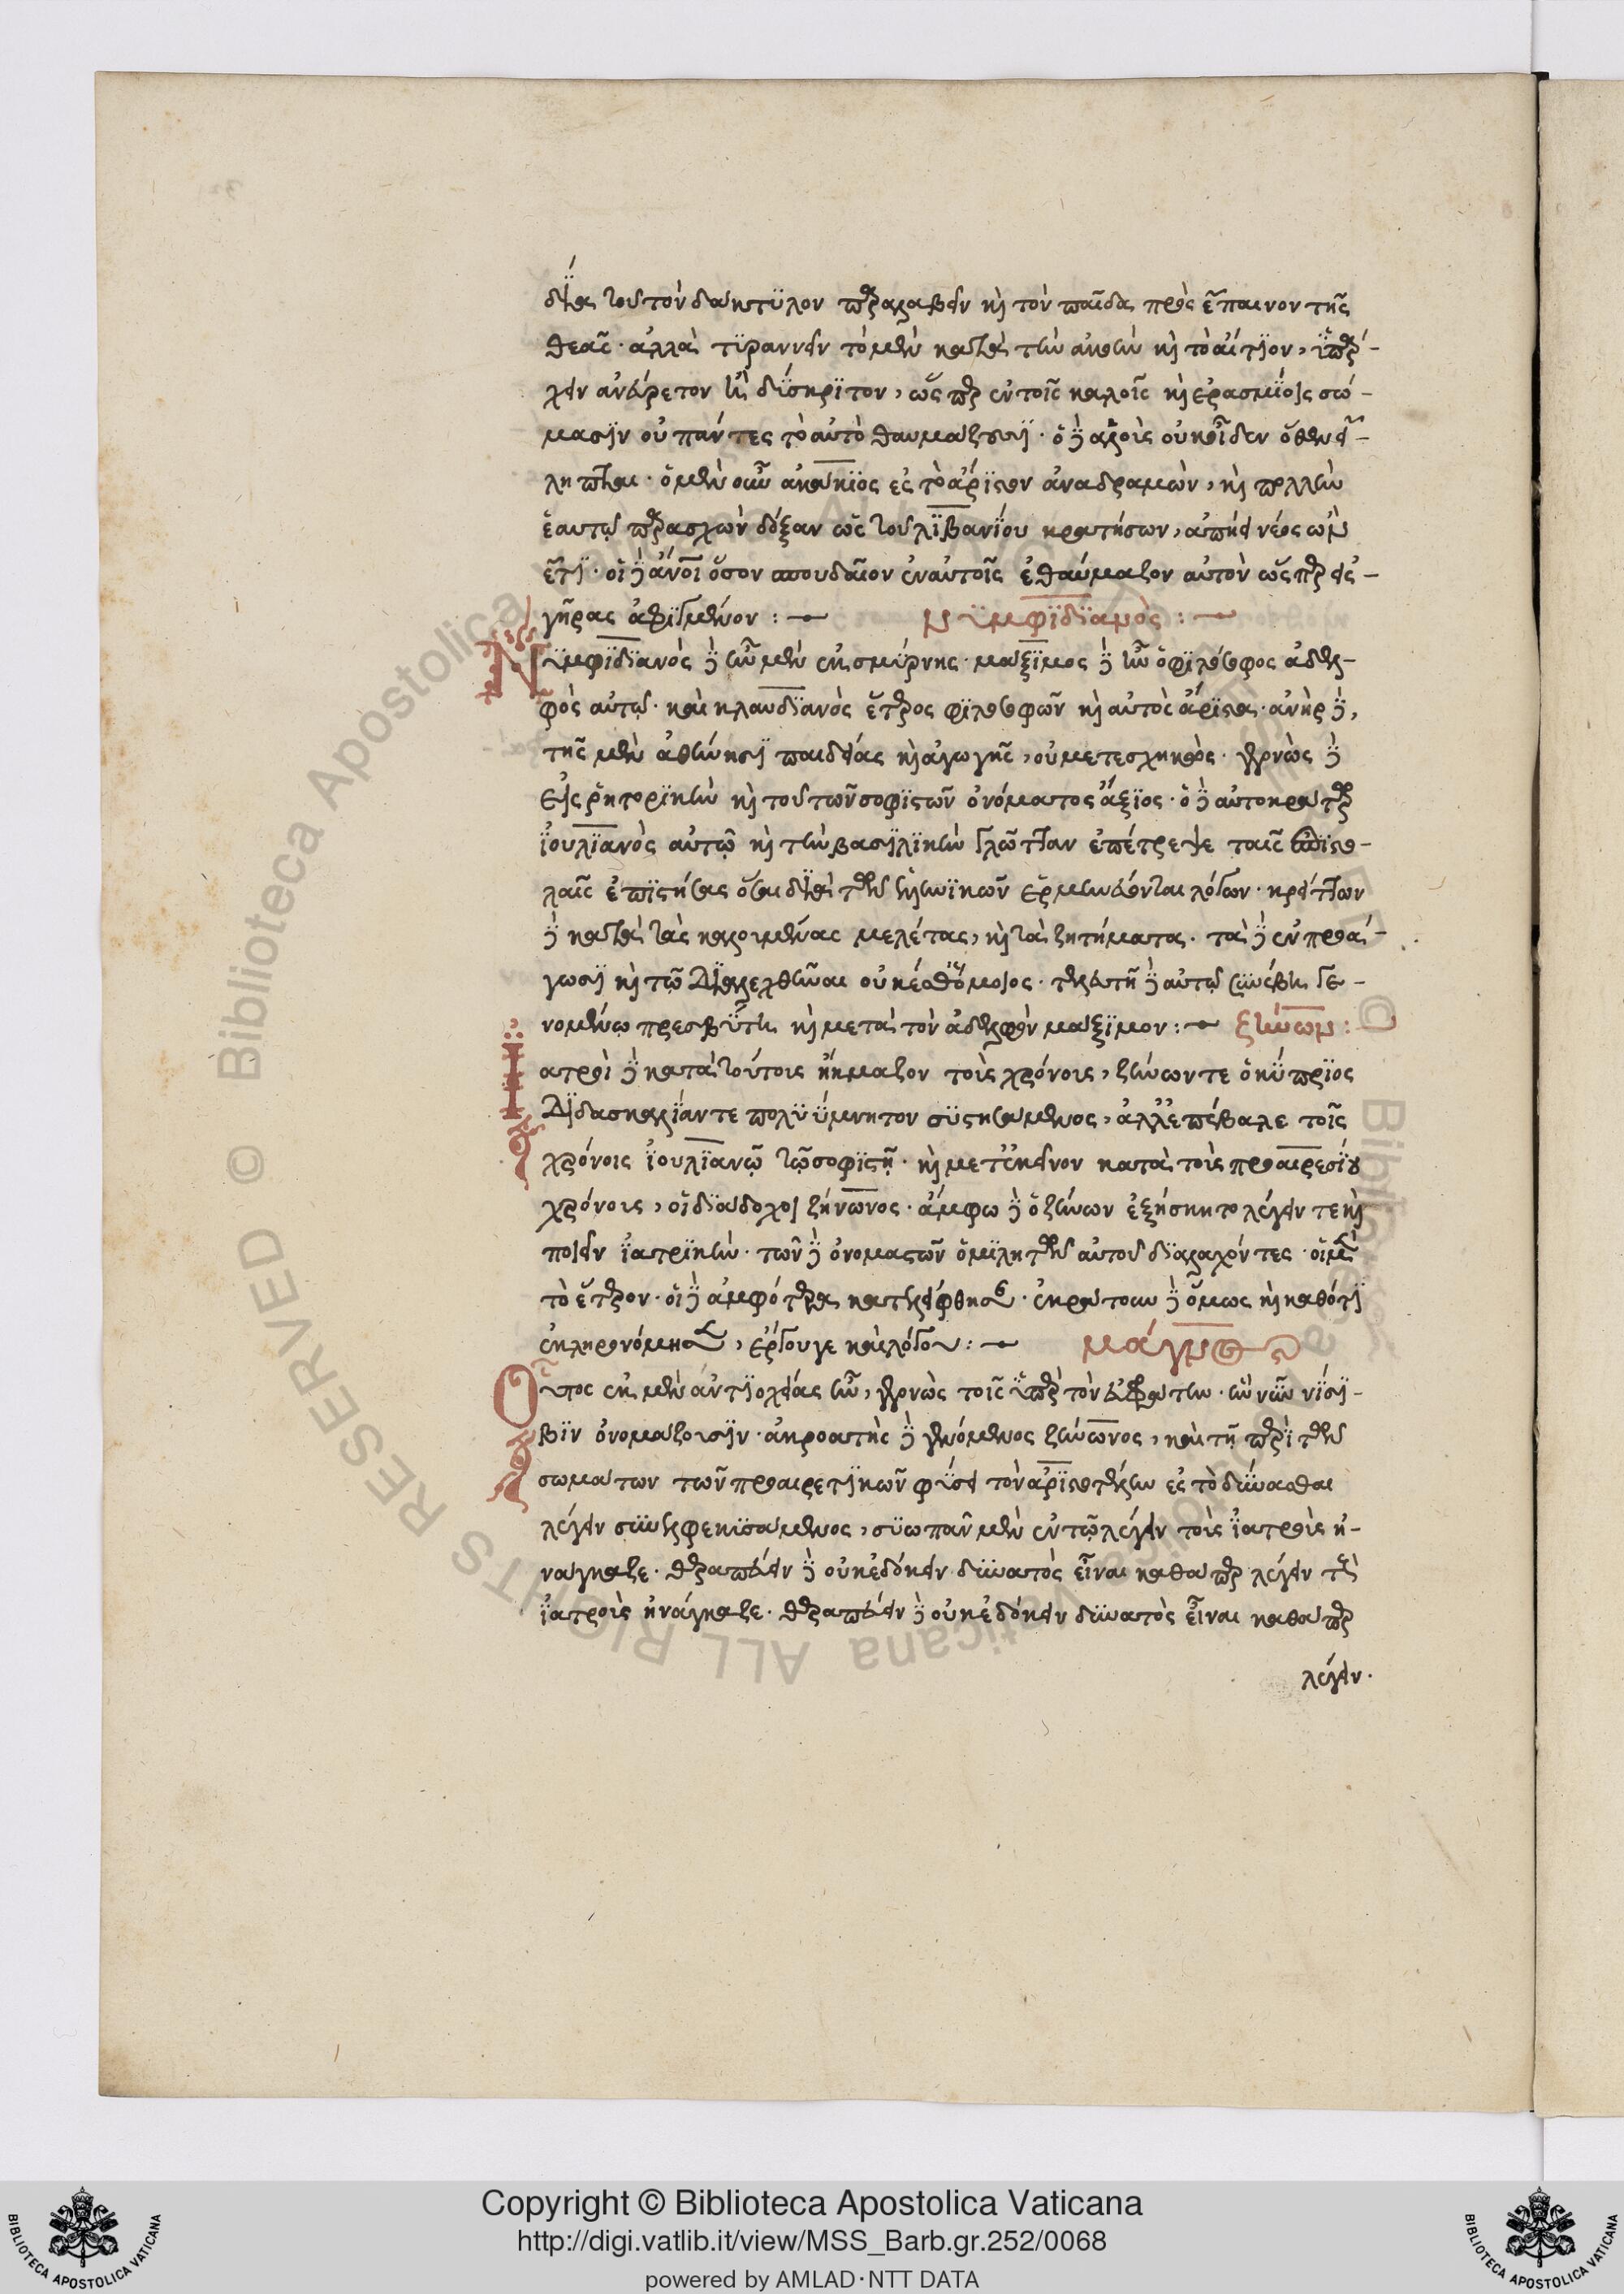 διὰ τοῦτον δακτύλον παραλαβεῖν καὶ τὸν παῖδα πρὸς ἔπαινον τῆς
θεᾶς· ἀλλὰ τυραννεῖν τὸ μὲν κατὰ τὴν ἀκοὴν καὶ τὸ αἴτιον, ὑπάρ-
χειν ἀνεύρετον ἢ δύσκριτον, ὥσπερ ἐν τοῖς καλοῖς καὶ ἐρασμίοις σώ-
μασιν οὐ πάντες τὸ αὐτὸ θαυμάζουσι· ὁ δὲ ἁλοὺς οὐκ οἶδεν ὅθεν εἴ-
ληπται· ὁ μὲν οὖν ἀκάκιος ἐς τὸ ἄριστον ἀναδραμὼν, καὶ πολλὴν
ἑαυτῷ παρασχὼν δόξαν ὡς τοῦ λιβανίου κρατήσων, ἀπῄει νέος ὢν
ἔτι· οἱ δὲ ἄνοι ὅσον σπουδαῖον ἐν αὐτοῖς ἐθαύμαζον αὐτὸν ὥσπερ εἰς
γῆρας ἀφιγμένον :
νυμφιδιανός :
Νυμφιδιανὸς δὲ ἦν μὲν ἐκ σμύρνης· μάξιμος δὲ ἦν ὁ φιλόσοφος ἀδελ-
φὸς αὐτῷ· καὶ κλαυδιανὸς ἕτερος φιλοσοφῶν καὶ αὐτὸς ἄριστα· ἀνὴρ δὲ,
τῆς μὲν ἀθήνησι παιδείας καὶ ἀγωγῆς, οὐ μετεσχηκὸς· γεγονὼς δὲ
εἰς ῥητορικὴν καὶ τοῦ τῶν σοφιστῶν ὀνόματος ἄξιος· ὁ δὲ αὐτοκράτωρ
ἰουλιανὸς αὐτῷ καὶ τὴν βασιλικὴν γλῶτταν ἐπέτρεψε ταῖς ἐπιστο-
λαῖς ἐπιστήσας ὅσαι διὰ τῶν ἑλληνικῶν ἑρμηνεύονται λόγων· κρείττων
δὲ κατὰ τὰς καλουμένας μελέτας, καὶ τὰ ζητήματα· τὰ δὲ ἐν προά-
γωσι καὶ τῷ διαλεχθῆναι οὐκέθ᾽ ὅμοιος· τελευτὴ δὲ αὐτῷ συνέβη γε-
νομένῳ πρεσβύτῃ καὶ μετὰ τὸν ἀδελφὸν μάξιμον :  ζήνων :
Ἰατροὶ δὲ κατὰ τούτους ἤκμαζον τοὺς χρόνους, ζήνων τε ὁ κύπριος
διδασκαλίαν τε πολυύμνητον συστησάμενος, ἀλλ᾽ ἐπέβαλε τοῖς
χρόνοις ἰουλιανῷ τῷ σοφιστῇ· καὶ μετ᾽ ἐκεῖνον κατὰ τοὺς προαιρεσίου
χρόνους, οἱ διάδοχοι ζήνωνος· ἄμφω δὲ ὁ ζήνων ἐξήσκητο λέγειν τε καὶ
ποιεῖν ἰατρικήν· τῶν δὲ ὀνομαστῶν ὁμιλητῶν αὐτοῦ διαλαχόντες· οἱ μὲν
τὸ ἕτερον· οἱ δὲ ἀμφότερα κατελείφθησαν· ἐκράτουν δὲ ὅμως καὶ καθότι
ἐκληρονόμησαν, ἔργου γε καὶ λόγου :  μάγνος
Οὗτος ἐκ μὲν ἀντιοχείας ἦν, γεγονὼς τοῖς ὑπὲρ τὸν εὐφράτην· ἣν νῦν νίσι-
βιν ὀνομάζουσιν· ἀκροατὴς δὲ γενόμενος ζήνωνος, καὶ τῇ περὶ τῶν
σωμάτων τῶν προαιρετικῶν φύσει τὸν ἀριστοτέλην ἐς τὸ δύνασθαι
λέγειν συνεφελκυσάμενος, σιωπᾶν μὲν ἐν τῷ λέγειν τοὺς ἰατροὺς ἠ-
νάγκαζε· θεραπεύειν δὲ οὐκ ἐδόκει δυνατὸς εἶναι καθάπερ λέγειν τοὺς
ἰατροὺς ἠνάγκαζε· θεραπεύειν δὲ οὐκ ἐδόκει δυνατὸς εἶναι καθάπερ
λέγειν·
Copyright © Biblioteca Apostolica Vaticana
http://digi.vatlib.it/view/MSS_Barb.gr.252/0068
powered by AMLAD·NTT DATA